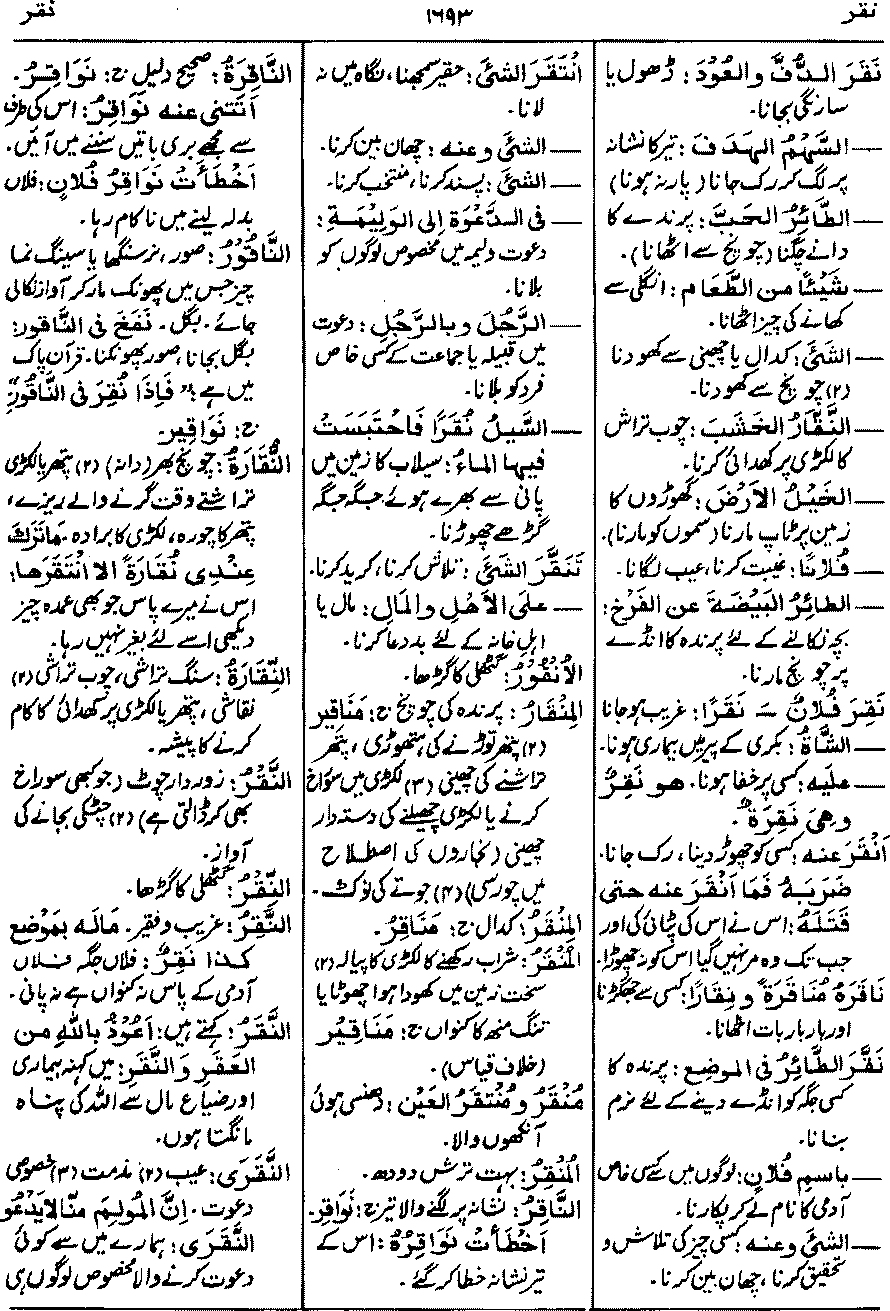 نقر
۱۶۹۳
نقر
نَقَرَ الدُّفَّ والعُودَ: ڈھول یا
سارنگی بجانا۔
— السَّهْمُ الهَدَفَ: تیر کا نشانہ
پر لگ کر رک جانا (پار نہ ہونا)
— الطَّائِرُ الحَبَّ: پرندے کا
دانے چگنا (چونچ سے اٹھانا)۔
— شَيْئًا من الطَّعَام: انگلی سے
کھانے کی چیز اٹھانا۔
— الشئَ: کدال یا چھینی سے کھودنا
(۲) چونچ سے کھودنا۔
— النَّقَّارُ الخَشَبَ: چوب تراش
کا لکڑی پر کھدائی کرنا۔
— الخَيْلُ الأرْضَ: گھوڑوں کا
زمین پر ٹاپ مارنا (سموں کو مارنا)۔
— فُلَانًا: غیبت کرنا، عیب لگانا۔
— الطائِرُ البَيْضَةَ عن الفَرْخ:
بچہ نکالنے کے لئے پرندہ کا انڈے
پر چونچ مارنا۔
نَقِرَ فُلَانٌ ـَ نَقَرًا: غریب ہوجانا
— الشَّاةُ: بکری کے پیر میں بیماری ہونا۔
— علیه: کسی پر خفا ہونا۔ هو نَقِرٌ
وهِیَ نَقِرَةٌ۔
أنْقَرَ عنه: کسی کو چھوڑ دینا، رک جانا۔
ضَرَبَهُ فَمَا أنْقَرَ عنه حتی
قَتَلَهُ: اس نے اس کی پٹائی کی اور
جب تک وہ مر نہیں گیا اس کو نہ چھوڑا۔
نَاقَرَهُ مُنَاقَرَةً و نِقَارًا: کسی سے جھگڑنا
اور بار بار بات اٹھانا۔
نَقَّرَ الطَّائِرُ فی الموضِعِ: پرندہ کا
کسی جگہ کو انڈے دینے کے لئے نرم
بنانا۔
— باسمِ فُلَانٍ: لوگوں میں سے کسی خاص
آدمی کا نام لے کر پکارنا۔
— الشئَ وعنه: کسی چیز کی تلاش و
تحقیق کرنا، چھان بین کرنا۔
انْتَقَرَ الشئَ: حقیر سمجھنا، نگاہ میں نہ
لانا۔
— الشئَ وعنه: چھان بین کرنا۔
— الشئَ: پسند کرنا، منتخب کرنا۔
— فی الدَّعْوَة إلی الوَلِيْمَةِ:
دعوت ولیمہ میں مخصوص لوگوں کو
بلانا۔
— الرَّجُلَ وبالرَّجُلِ: دعوت
میں قبیلہ یا جماعت کے کسی خاص
فرد کو بلانا۔
— السَّيلُ نُقَرًا فَاحْتَبَسَتْ
فيها الماءُ: سیلاب کا زمین میں
پانی سے بھرے ہوئے جگہ جگہ
گڑھے چھوڑنا۔
تَنَقَّرَ الشئَ: تلاش کرنا، کرید کرنا۔
— علی الأهْلِ والمَالِ: مال یا
اہل خانہ کے لئے بددعا کرنا۔
الأُنْقُورُ: گٹھلی کا گڑھا۔
المِنْقَارُ: پرندہ کی چونچ ج: مَنَاقِیر
(۲) پتھر توڑنے کی ہتھوڑی، پتھر
تراشنے کی چھینی (۳) لکڑی میں سوراخ
کرنے یا لکڑی چھیلنے کی دستہ دار
چھینی (نجاروں کی اصطلاح
میں چورسی) (۴) جوتے کی نوک۔
المِنْقَرُ: کدال ج: مَنَاقِرُ۔
المُنْقُرُ: شراب رکھنے کا لکڑی کا پیالہ (۲)
سخت زمین میں کھودا ہوا چھوٹا یا
تنگ منھ کا کنواں ج: مَنَاقِیْرُ
(خلاف قیاس)۔
مُنْقَرُ ومُنْتَقَرُ العَیْن: دھنسی ہوئی
آنکھوں والا۔
المُنْقِرُ: بہت ترش دودھ۔
النَّاقِرُ: نشانہ پر لگنے والا تیر ج: نَوَاقِرُ۔
أخْطَأتْ نَوَاقِرُهُ: اس کے
تیر نشانہ خطا کر گئے۔
النَّاقِرَةُ: صحیح دلیل ج: نَوَاقِرُ۔
أتَتْنی عنه نَوَاقِرُ: اس کی طرف
سے مجھے بری باتیں سننے میں آئیں۔
أخْطَأتْ نَوَاقِرُ فُلَانٍ: فلاں
بدلہ لینے میں ناکام رہا۔
النَّاقُوْرُ: صور، نرسنگھا یا سینگ نما
چیز جس میں پھونک مار کر آواز نکالی
جائے۔ بگل۔ نَفَخَ فی النَّاقور:
بگل بجانا، صور پھونکنا۔ قرآن پاک
میں ہے: "فَإذَا نُقِرَ فی النَّاقُوْرِ"
ج: نَوَاقِیر۔
النُّقَارَةُ: چونچ بھر (دانہ) (۲) پتھر یا لکڑی
تراشتے وقت گرنے والے ریزے،
پتھر کا چورہ، لکڑی کا برادہ۔ مَاتَرَكَ
عِنْدِی نُقَارَةً الا انْتَقَرَها:
اس نے میرے پاس جو بھی عمدہ چیز
دیکھی اسے لئے بغیر نہیں رہا۔
النِّقَارَةُ: سنگ تراشی، چوب تراشی (۲)
نقاشی، پتھر یا لکڑی پر کھدائی کا کام
کرنے کا پیشہ۔
النَّقْرُ: زور دار چوٹ (جو کبھی سوراخ
بھی کر ڈالتی ہے) (۲) چٹکی بجانے کی
آواز۔
النِّقْرُ: گٹھلی کا گڑھا۔
النَّقِرُ: غریب وفقیر۔ مَالَه بمَوْضِع
كذا نَقِرٌ: فلاں جگہ فلاں
آدمی کے پاس نہ کنواں ہے نہ پانی۔
النَّقَرُ: کہتے ہیں: أعُوْذُ بِاللهِ من
العَقَرِ والنَّقَرِ: میں کہنہ بیماری
اور ضیاع مال سے اللہ کی پناہ
مانگتا ہوں۔
النَّقَرَی: عیب (۲) مذمت (۳) خصوصی
دعوت۔ إنَّ المُولِمَ مِنَّا لایَدْعُو
النَّقَرَی: ہمارے میں سے کوئی
دعوت کرنے والا مخصوص لوگوں ہی